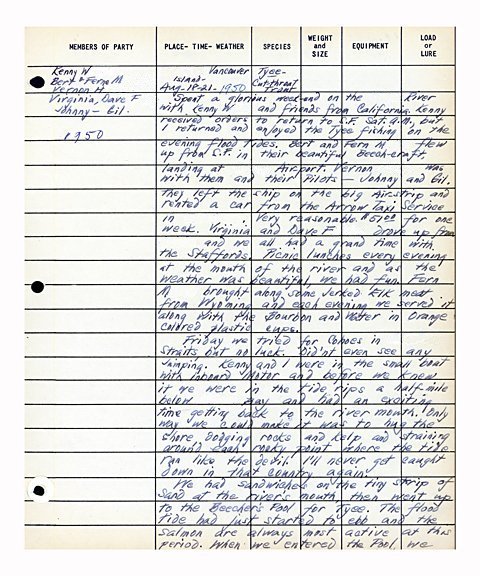 MEMBERS OF PARTY PLACE- TIME- WEATHER SPECIES WEIGHT and SIZE EQUIPMENT LOAD or LURE
Kenny W Vancouver Tyee-
Bert & Fern M Island- Cutthroat
Vernon H Aug-18-21-1950 Trout
Virginia, Dave F Spent a glorious week-end on the River
Johnny - Gil. with Kenny W and friends from California. Kenny
received orders to return to S.F. Sat. A.M. but
1950 I returned and enjoyed the Tyee fishing on the
evening flood tides. Bert and Fern M flew
up from S.F. in their beautiful Beech-craft.
landing at Airport. Vernon was
with them and their Pilots - Johnny and Gil.
They left the ship on the big Airstrip and
rented a car from the Arrow Taxi Service
in . Very reasonable. $51.00 for one
week. Virginia and Dave F drove up from
and we all had a grand time with
the Staffords. Picnic lunches every evening
at the mouth of the river and as the
weather was beautiful, we had fun. Fern
M brought along some Jerked Elk meat
from Wyoming and each evening we served it
along with the Bourbon and Water in Orange
colored plastic cups.
Friday we tried for Cohoes in
Straits but no luck. Didn't even see any
Jumping. Kenny and I were in the small boat
with inboard Motor and before we knew
it we were in the tide rips a half-mile
below bay and had an exciting
time getting back to the river mouth. Only
way we could make it was to hug the
shore, Dodging rocks and kelp and straining
around each rocky point where the tide
ran like the devil. I'll never get caught
down in that country again.
We had sandwiches on the tiny strip of
sand at the river's mouth, then went up
to the Beechers Pool for Tyee. The flood
tide had just started to ebb and the
Salmon are always most active at this
period. When we entered the Pool, we